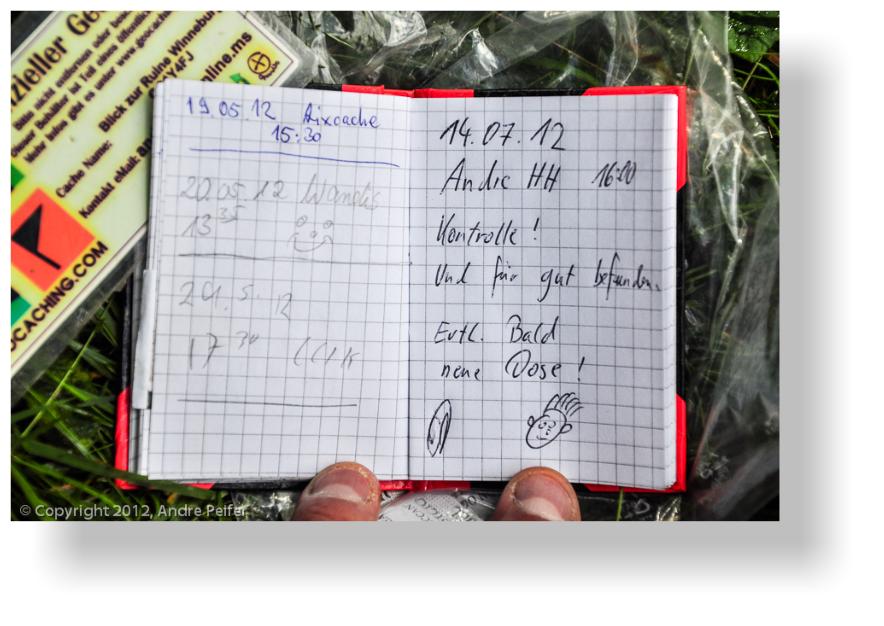 zieller Ge
Bitte nicht entfernen oder
Dieser Behälter ist Teil eines öffentlichen
Mehr Infos gibt es unter www.geocach
Cache Name:
Blick zur Ruine Winneburg
Y4FJ
Kontakt eMail:
nline.ms
OCACHING.COM
19.05.12 Aixcache
15:30
20.05.12 Wandis
13 35
5. 12
17 30
14.07.12
Andre HH 16:00
Kontrolle!
Und für gut befunden.
Evtl. Bald
neue Dose!
© Copyright 2012, Andre Peifer